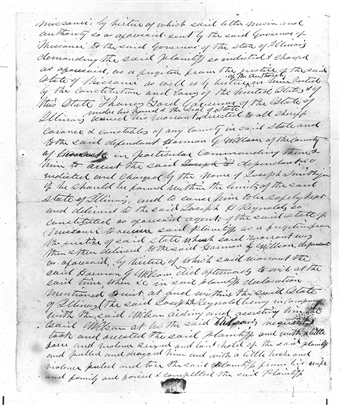 Missouri by virtue of which said letter missive and
authority so as aforesaid sent by the said Governor of
Missouri to the said Governor of the State of Illinois
demanding the said Plaintiff so indicted & charged
as aforesaid, as a fugitive from the justice of the said
State of Missouri as well as by virtue of the authority
by the Constitution and Laws of the United States & of
this State Thomas Ford Governor of the State of
Illinois under his hand & the Seal of State
issued his warrant directed to all Sheriffs
Coroners & Constables of any county in said State and
to the said defendant Harmon G Wilson of the County
of in particular Commanding them &
him to arrest the said Joseph
indicted and Charged by the Name of Joseph Smith Jr
if he should be found within the limits of the said
State of Illinois, and to cause him to be safely kept
and delivered to the said Joseph H Reynolds
constituted as aforesaid agent of the said State of
Missouri to receive said Plaintiff as a fugitive from
the justice of said State which said warrant was
then & there delivered to the said Harmon G Wilson
as aforesaid, by virtue of which said warrant the
said Harmon G Wilson did afterwards to wit at the
said time when &c in said Plaintiffs declaration
mentioned to wit at and within the said State
of Illinois (the said Joseph H Reynolds being in company
with the said Wilson aiding and assisting him the
said Wilson at his the said request)
took and arrested the said Plaintiff and with a little
force and violence seized and laid hold of the said plaintiff
and pulled and dragged him and with a little force and
violence pulled and tore the said plaintiff from his wife
and family and forced & compelled the said Plaintiff